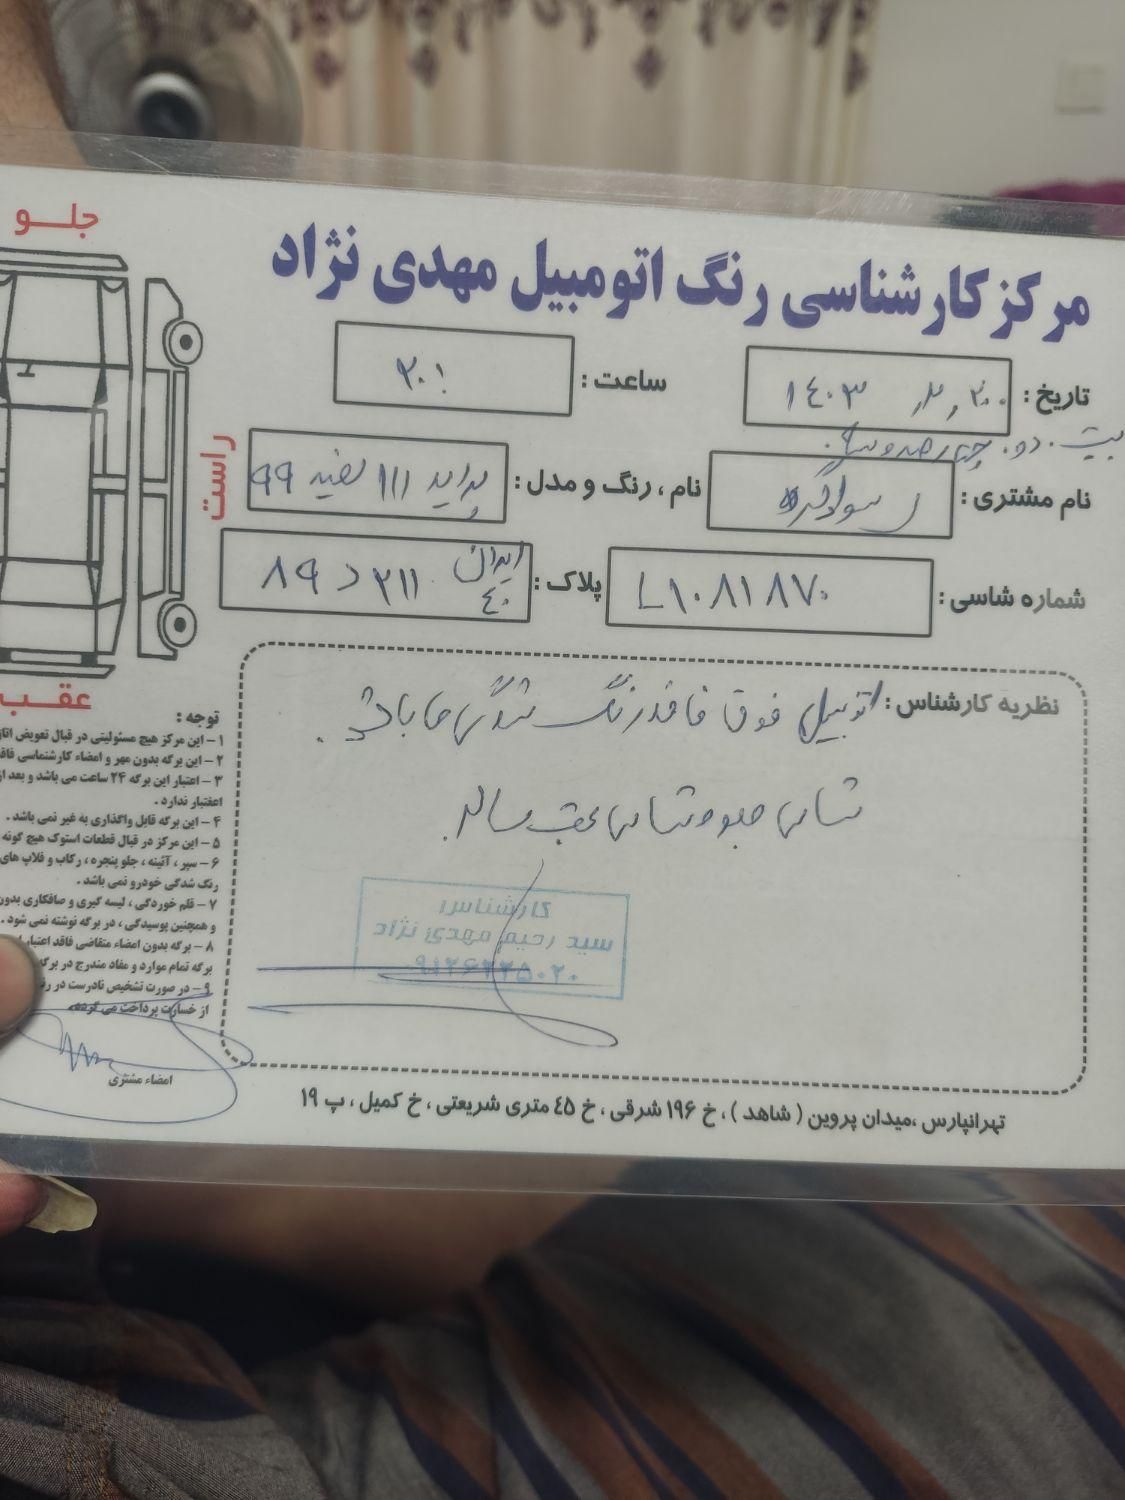 جلو
مرکز کارشناسی رنگ اتومبیل مهدی نژاد
تاریخ : ۱۴۰۳
ساعت :
نام مشتری :
نام ، رنگ و مدل : پراید ۱۱۱ سفید ۹۹
راست
شماره شاسی : L۱۰۸۱۸۷۰
پلاک : ایران ۴۰ ۳۱۱ د ۸۹
نظریه کارشناس : اتومبیل فوق فاقد رنگ شدگی ها باشد .
شاسی جلو و شاسی عقب سالم .
عقب
توجه :
۱ – این مرکز هیچ مسئولیتی در قبال تعویض اتاق
۲ – این برگه بدون مهر و امضاء کارشناسی
۳ – اعتبار این برگه ۲۴ ساعت می باشد و بعد از
اعتبار ندارد .
۴ – این برگه قابل واگذاری به غیر نمی باشد .
۵ – این مرکز در قبال قطعات استوک هیچ گونه
۶ – سپر ، آئینه ، جلو پنجره ، رکاب و قلاب های
رنگ شدگی خودرو نمی باشد .
۷ – قلم خوردگی ، لیسه گیری و صافکاری بدون
و همچنین پوسیدگی ، در برگه نوشته نمی شود .
۸ – برگه بدون امضاء متقاضی فاقد اعتبار
برگه تمام موارد و مفاد مندرج در برگه
۹ – در صورت تشخیص نادرست در
از خسارت پرداخت می گردد.
امضاء مشتری
کارشناس
سید رحیم مهدی نژاد
تهرانپارس ،میدان پروین ( شاهد ) ، خ ۱۹۶ شرقی ، خ ۴۵ متری شریعتی ، خ کمیل ، پ ۱۹